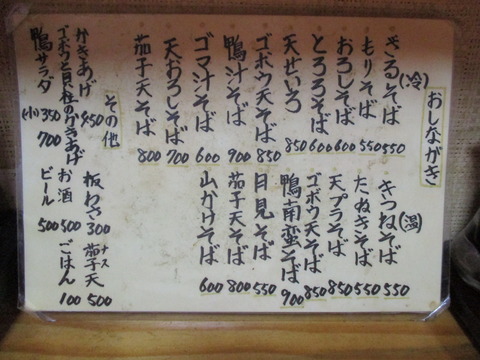 おしながき
(冷)
ざるそば 550
もりそば 550
おろしそば 600
とろろそば 600
天せいろ 850
ゴボウ天そば 850
鴨汁そば 900
ゴマ汁そば 600
天おろしそば 700
茄子天そば 800
(温)
きつねそば 550
たぬきそば 550
天プラそば 850
ゴボウ天そば 850
鴨南蛮そば 900
月見そば 550
茄子天そば 800
山かけそば 600
その他
かきあげ 450
ゴボウと貝柱のかきあげ
鴨サラダ 700
(小) 350
板わさ 300
茄子天 500
ナス
お酒 500
ごはん 100
ビール 500